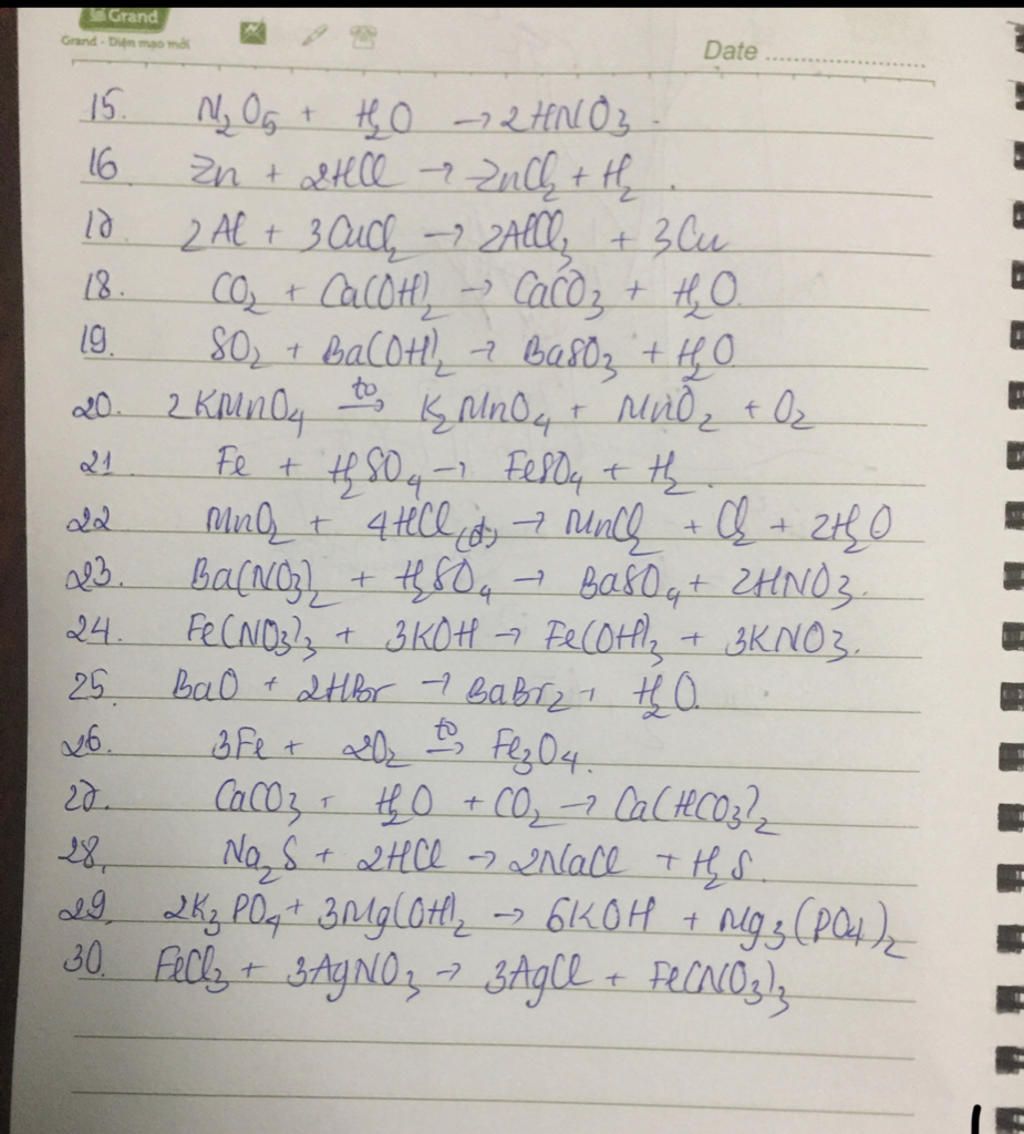 Grand
Grand - Diện mạo mới
Date
15. N₂O₅ + H₂O → 2HNO₃.
16 Zn + 2HCl → ZnCl₂ + H₂.
17. 2Al + 3CuCl₂ → 2AlCl₃ + 3Cu
18. CO₂ + Ca(OH)₂ → CaCO₃ + H₂O.
19. SO₂ + Ba(OH)₂ → BaSO₃ + H₂O
20. 2KMnO₄ →(to) K₂MnO₄ + MnO₂ + O₂
21 Fe + H₂SO₄ → FeSO₄ + H₂.
22 MnO₂ + 4HCl(đ) → MnCl₂ + Cl₂ + 2H₂O
23. Ba(NO₃)₂ + H₂SO₄ → BaSO₄ + 2HNO₃.
24. Fe(NO₃)₃ + 3KOH → Fe(OH)₃ + 3KNO₃.
25. BaO + 2HBr → BaBr₂ + H₂O.
26. 3Fe + 2O₂ →(to) Fe₃O₄.
27. CaCO₃ + H₂O + CO₂ → Ca(HCO₃)₂
28, Na₂S + 2HCl → 2NaCl + H₂S.
29, 2K₃PO₄ + 3Mg(OH)₂ → 6KOH + Mg₃(PO₄)₂
30. FeCl₃ + 3AgNO₃ → 3AgCl + Fe(NO₃)₃